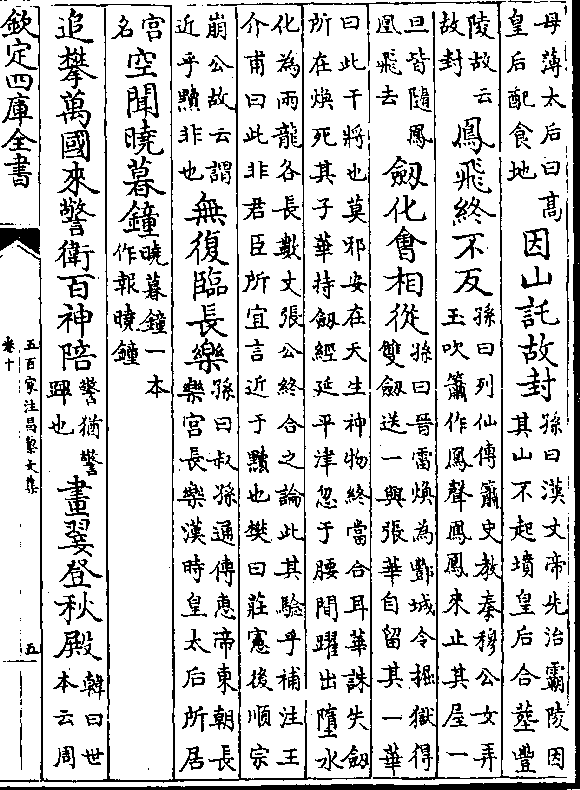 母薄太后曰高
皇后配食地
因山託故封
孫曰漢文帝先治霸陵因
其山不起墳皇后合葬豐
陵故云
故封
鳳飛終不反
孫曰列仙傳簫史教秦穆公女弄
玉吹簫作鳳聲鳳鳳來止其屋一
旦皆隨鳳
凰飛去
劔化會相從
孫曰晉雷煥為酆城令掘獄得
雙劔送一與張華自留其一華
曰此干將也莫邪安在天生神物終當合耳華誅失劔
所在煥死其子華持劔經延平津忽于腰間躍出墮水
化為兩龍各長數丈張公終合之論此其驗乎補注王
介甫曰此非君臣所宜言近于黷也樊曰莊憲後順宗
崩公故云謂
近乎黷非也
無復臨長樂
孫曰叔孫通傳惠帝東朝長
樂宮長樂漢時皇太后所居
宮
名
空聞曉暮鐘
曉暮鐘一本
作報曉鐘
追攀萬國來警衛百神陪
警猶警
蹕也
畫翣登秋殿
韓曰世
本云周
欽定四庫全書
五百家注昌黎文集
卷十
五